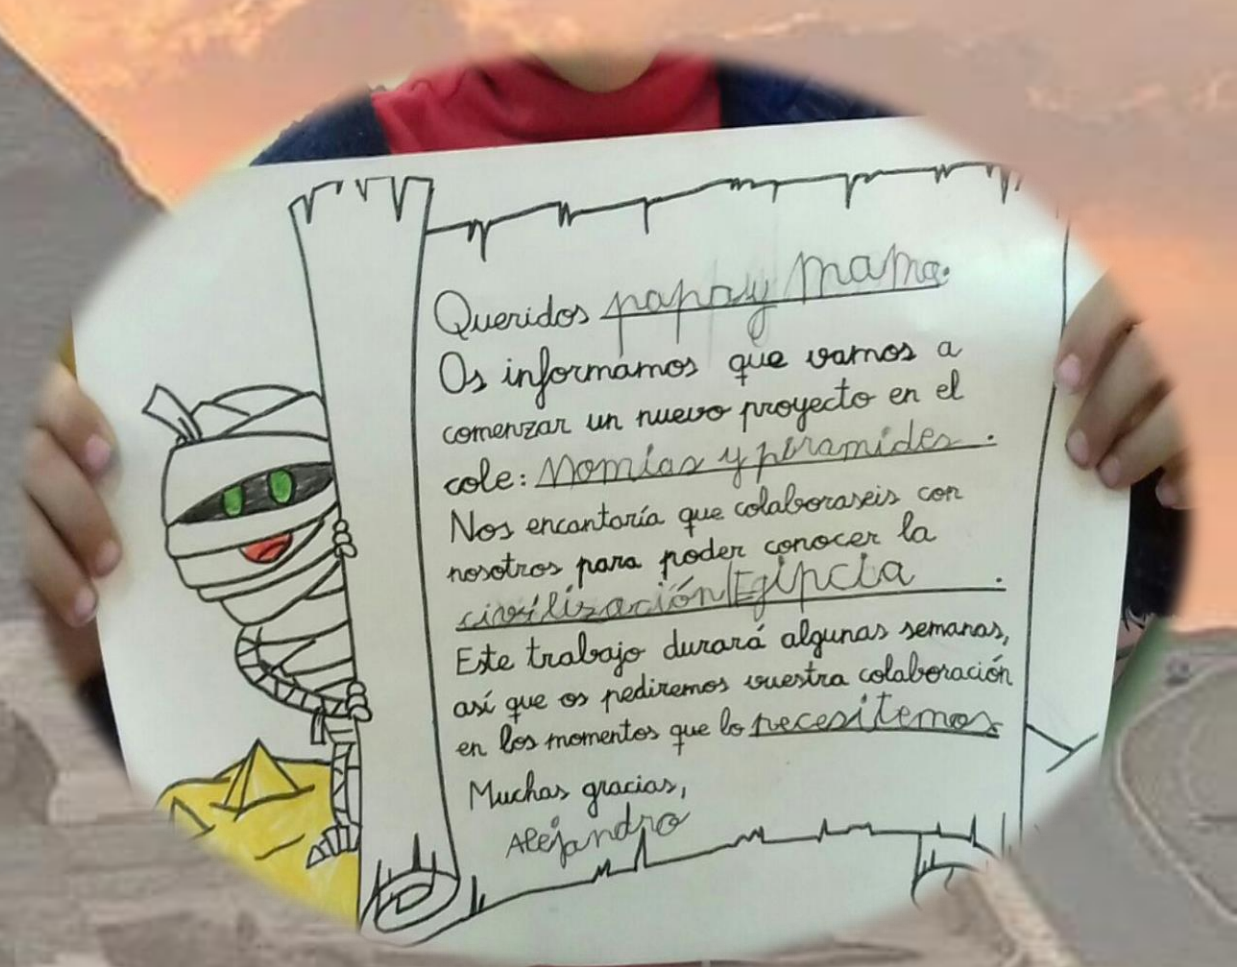 Queridos papa y mama.
Os informamos que vamos a
comenzar un nuevo proyecto en el
cole: Momias y piramides.
Nos encantaría que colaboraseis con
nosotros para poder conocer la
civilización Egipcia.
Este trabajo durará algunas semanas,
así que os pediremos vuestra colaboración
en los momentos que lo necesitemos
Muchas gracias,
Alejandro